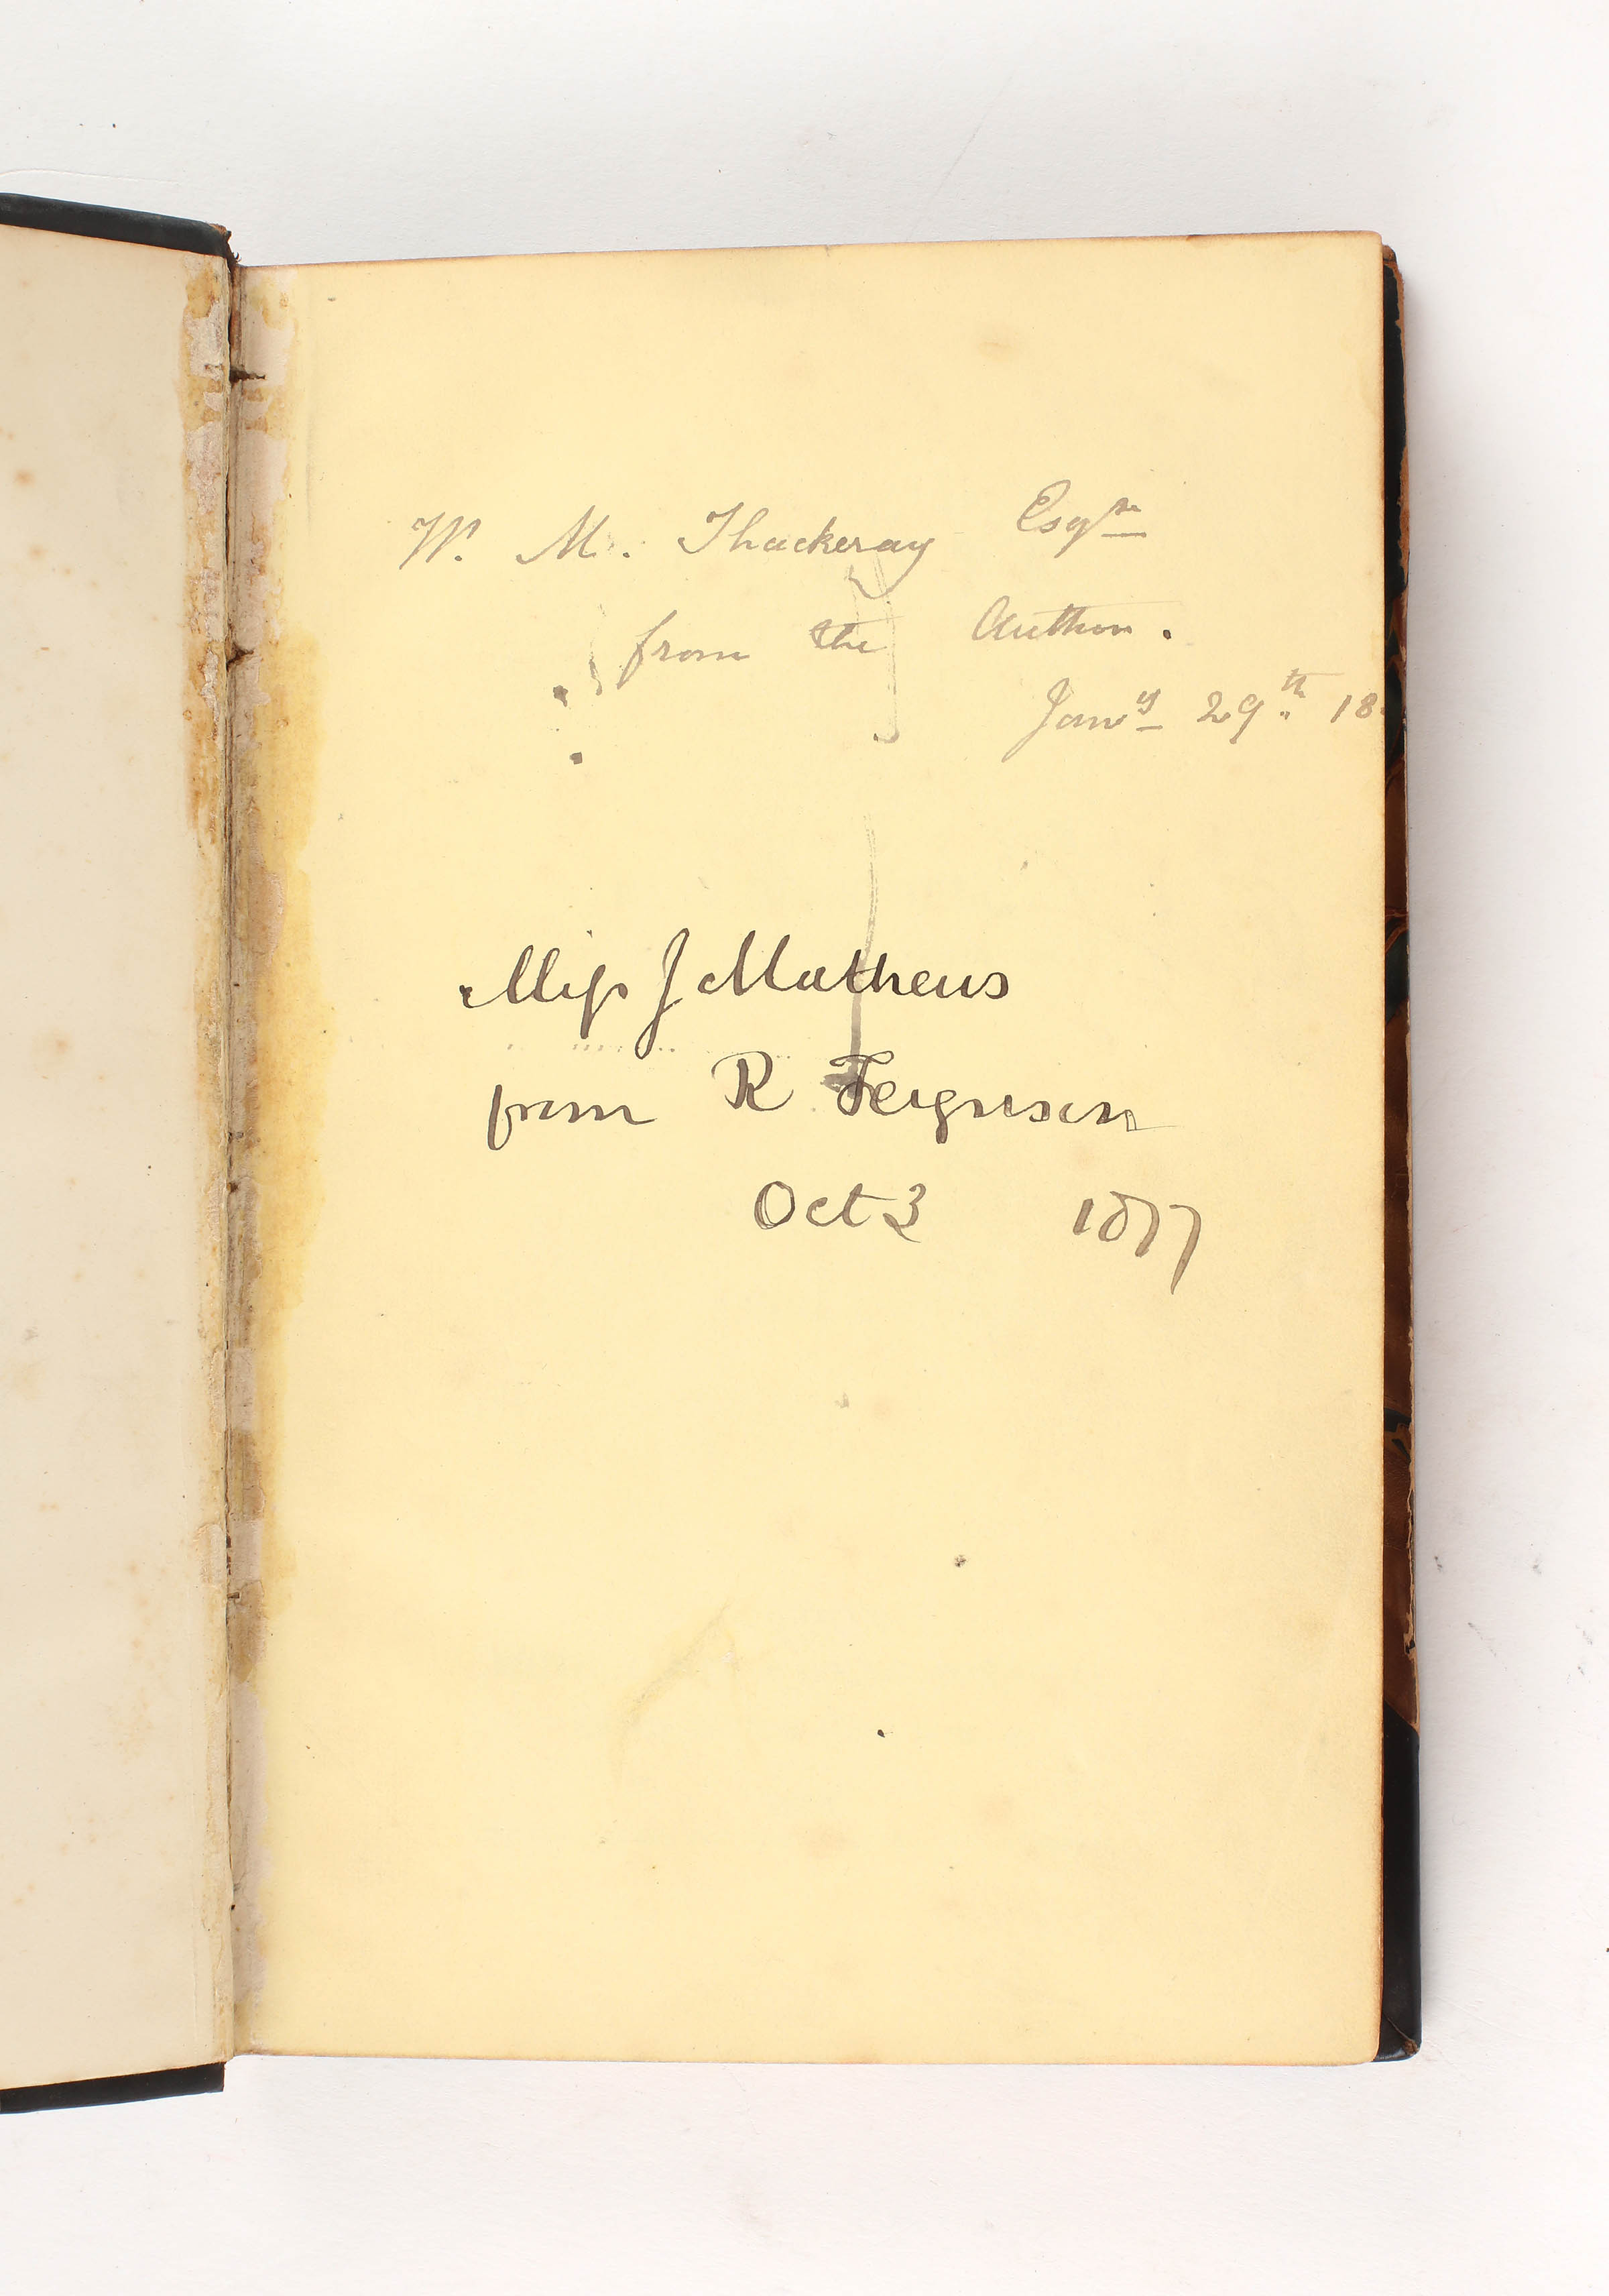 W. M. Thackeray Esqre
from the Author.
Jany 29th 18
Miss J Mathews
from R Ferguson
Oct 3 1877